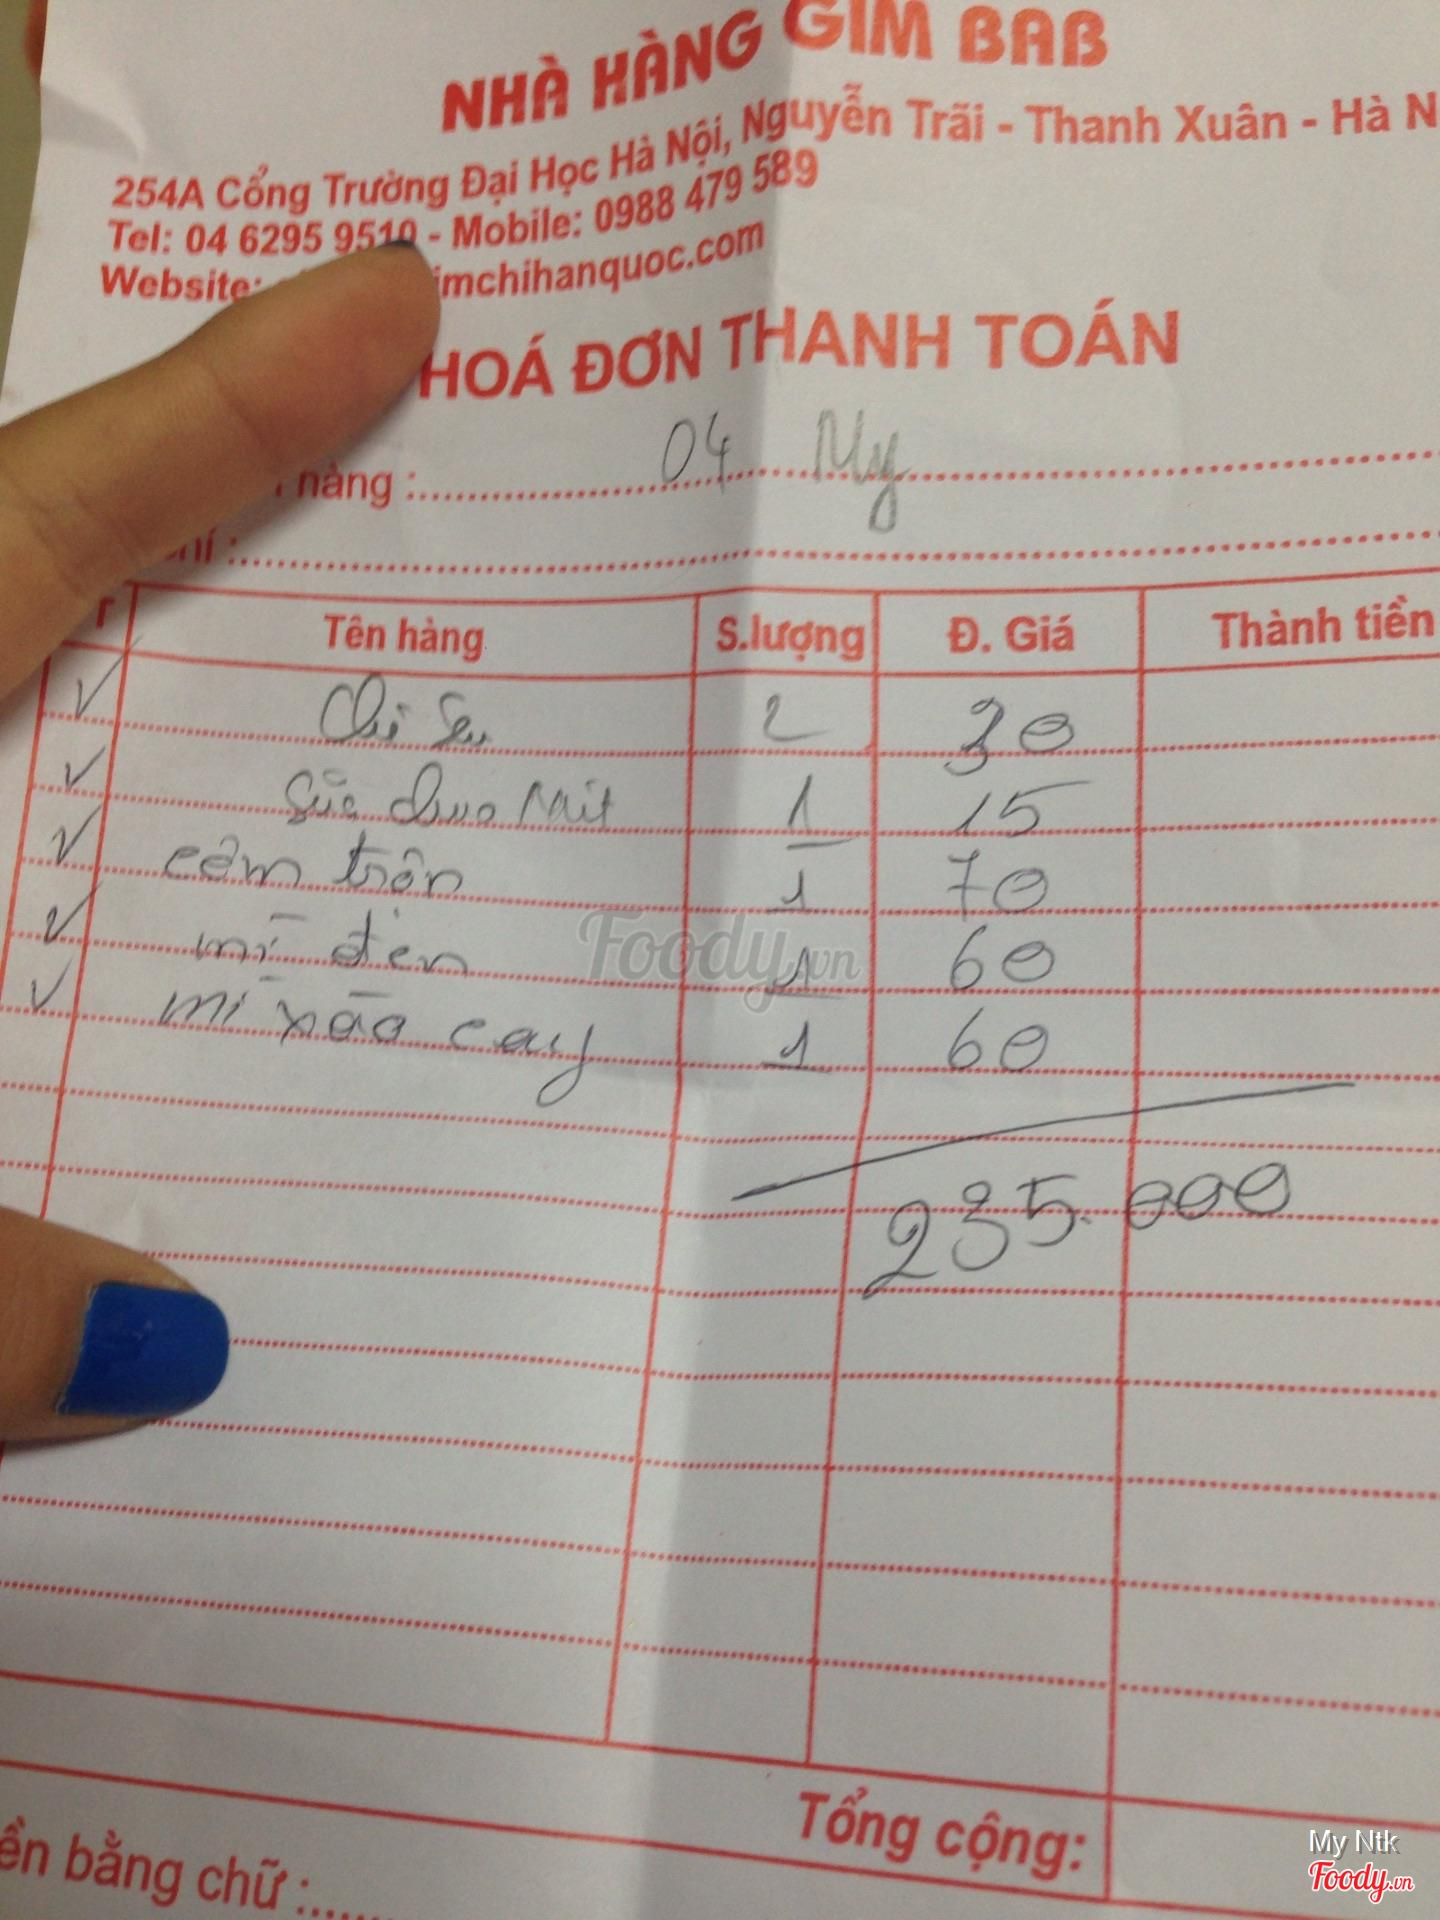 NHÀ HÀNG GIM BAB
254A Cổng Trường Đại Học Hà Nội, Nguyễn Trãi - Thanh Xuân - Hà N
Tel: 04 6295 9510 - Mobile: 0988 479 589
Website: imchihanquoc.com
HOÁ ĐƠN THANH TOÁN
hàng : 04 My
chỉ :
T Tên hàng S.lượng Đ. Giá Thành tiền
2 30
Sữa chua mít 1 15
cơm trộn 1 70
mì đen 1 60
mì xào cay 1 60
235.000
Tổng cộng:
ền bằng chữ :
Foody.vn
My Ntk
Foody.vn